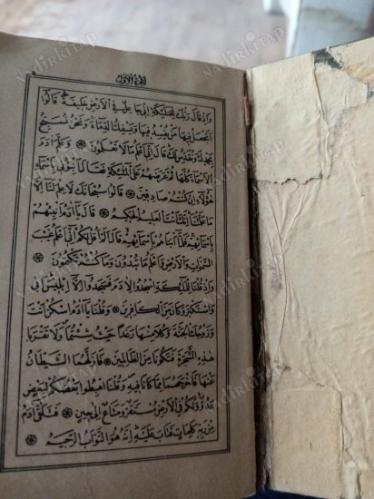 الجزء الأول
وَإِذْ قَالَ رَبُّكَ لِلْمَلٰٓئِكَةِ إِنِّي جَاعِلٌ فِي الْأَرْضِ خَلِيفَةً قَالُوا
أَتَجْعَلُ فِيهَا مَنْ يُفْسِدُ فِيهَا وَيَسْفِكُ الدِّمَاءَ وَنَحْنُ نُسَبِّحُ
بِحَمْدِكَ وَنُقَدِّسُ لَكَ قَالَ إِنِّي أَعْلَمُ مَا لَا تَعْلَمُونَ ۞ وَعَلَّمَ آدَمَ
الْأَسْمَاءَ كُلَّهَا ثُمَّ عَرَضَهُمْ عَلَى الْمَلٰٓئِكَةِ فَقَالَ أَنْبِئُونِي بِأَسْمَاءِ
هٰٓؤُلَاءِ إِنْ كُنْتُمْ صَادِقِينَ ۞ قَالُوا سُبْحَانَكَ لَا عِلْمَ لَنَا إِلَّا
مَا عَلَّمْتَنَا إِنَّكَ أَنْتَ الْعَلِيمُ الْحَكِيمُ ۞ قَالَ يَا آدَمُ أَنْبِئْهُمْ
بِأَسْمَائِهِمْ فَلَمَّا أَنْبَأَهُمْ بِأَسْمَائِهِمْ قَالَ أَلَمْ أَقُلْ لَكُمْ إِنِّي أَعْلَمُ غَيْبَ
السَّمٰوَاتِ وَالْأَرْضِ وَأَعْلَمُ مَا تُبْدُونَ وَمَا كُنْتُمْ تَكْتُمُونَ ۞
وَإِذْ قُلْنَا لِلْمَلٰٓئِكَةِ اسْجُدُوا لِآدَمَ فَسَجَدُوا إِلَّا إِبْلِيسَ أَبٰى
وَاسْتَكْبَرَ وَكَانَ مِنَ الْكَافِرِينَ ۞ وَقُلْنَا يَا آدَمُ اسْكُنْ أَنْتَ
وَزَوْجُكَ الْجَنَّةَ وَكُلَا مِنْهَا رَغَدًا حَيْثُ شِئْتُمَا وَلَا تَقْرَبَا
هٰذِهِ الشَّجَرَةَ فَتَكُونَا مِنَ الظَّالِمِينَ ۞ فَأَزَلَّهُمَا الشَّيْطَانُ
عَنْهَا فَأَخْرَجَهُمَا مِمَّا كَانَا فِيهِ وَقُلْنَا اهْبِطُوا بَعْضُكُمْ لِبَعْضٍ
عَدُوٌّ وَلَكُمْ فِي الْأَرْضِ مُسْتَقَرٌّ وَمَتَاعٌ إِلٰى حِينٍ ۞ فَتَلَقّٰى آدَمُ
مِنْ رَبِّهِ كَلِمَاتٍ فَتَابَ عَلَيْهِ إِنَّهُ هُوَ التَّوَّابُ الرَّحِيمُ ۞
NADİRKİTAP